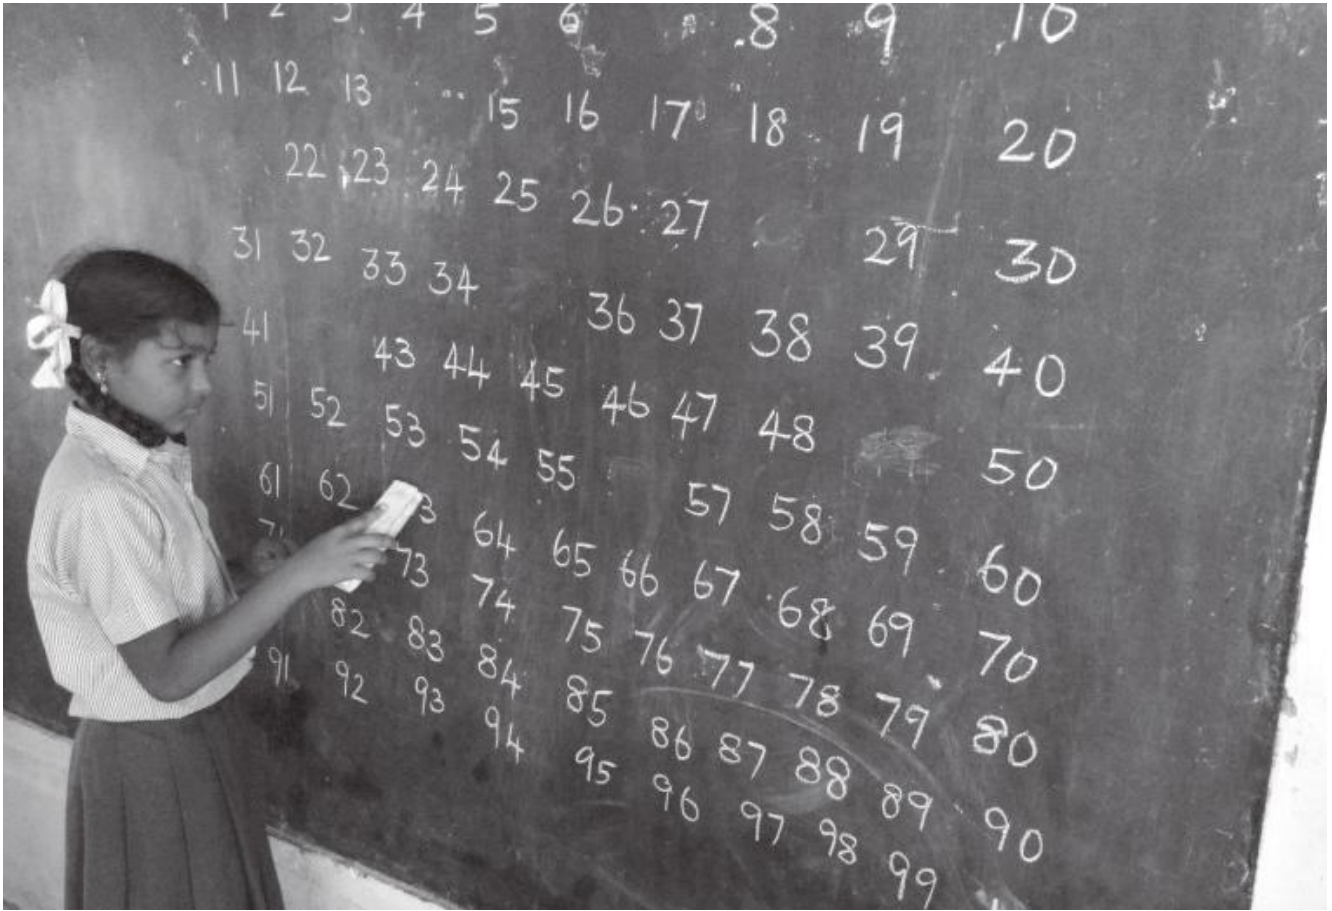 1 2 3 4 5 6 8 9 10
11 12 13 15 16 17 18 19 20
22 23 24 25 26 27 29 30
31 32 33 34 36 37 38 39 40
41 43 44 45 46 47 48 50
51 52 53 54 55 57 58 59 60
61 62 3 64 65 66 67 68 69 70
73 74 75 76 77 78 79 80
82 83 84 85 86 87 88 89 90
91 92 93 94 95 96 97 98 99